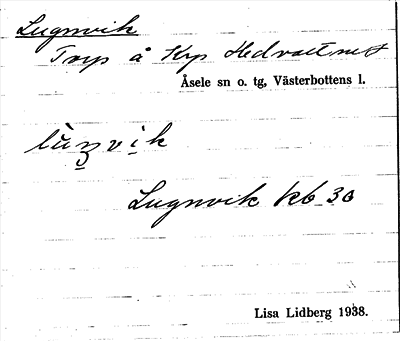 Lugnvik
Torp å Krp Hedvattnet
Åsele sn o. tg, Västerbottens l.
lùŋvik
Lugnvik kb 30
Lisa Lidberg 1938.